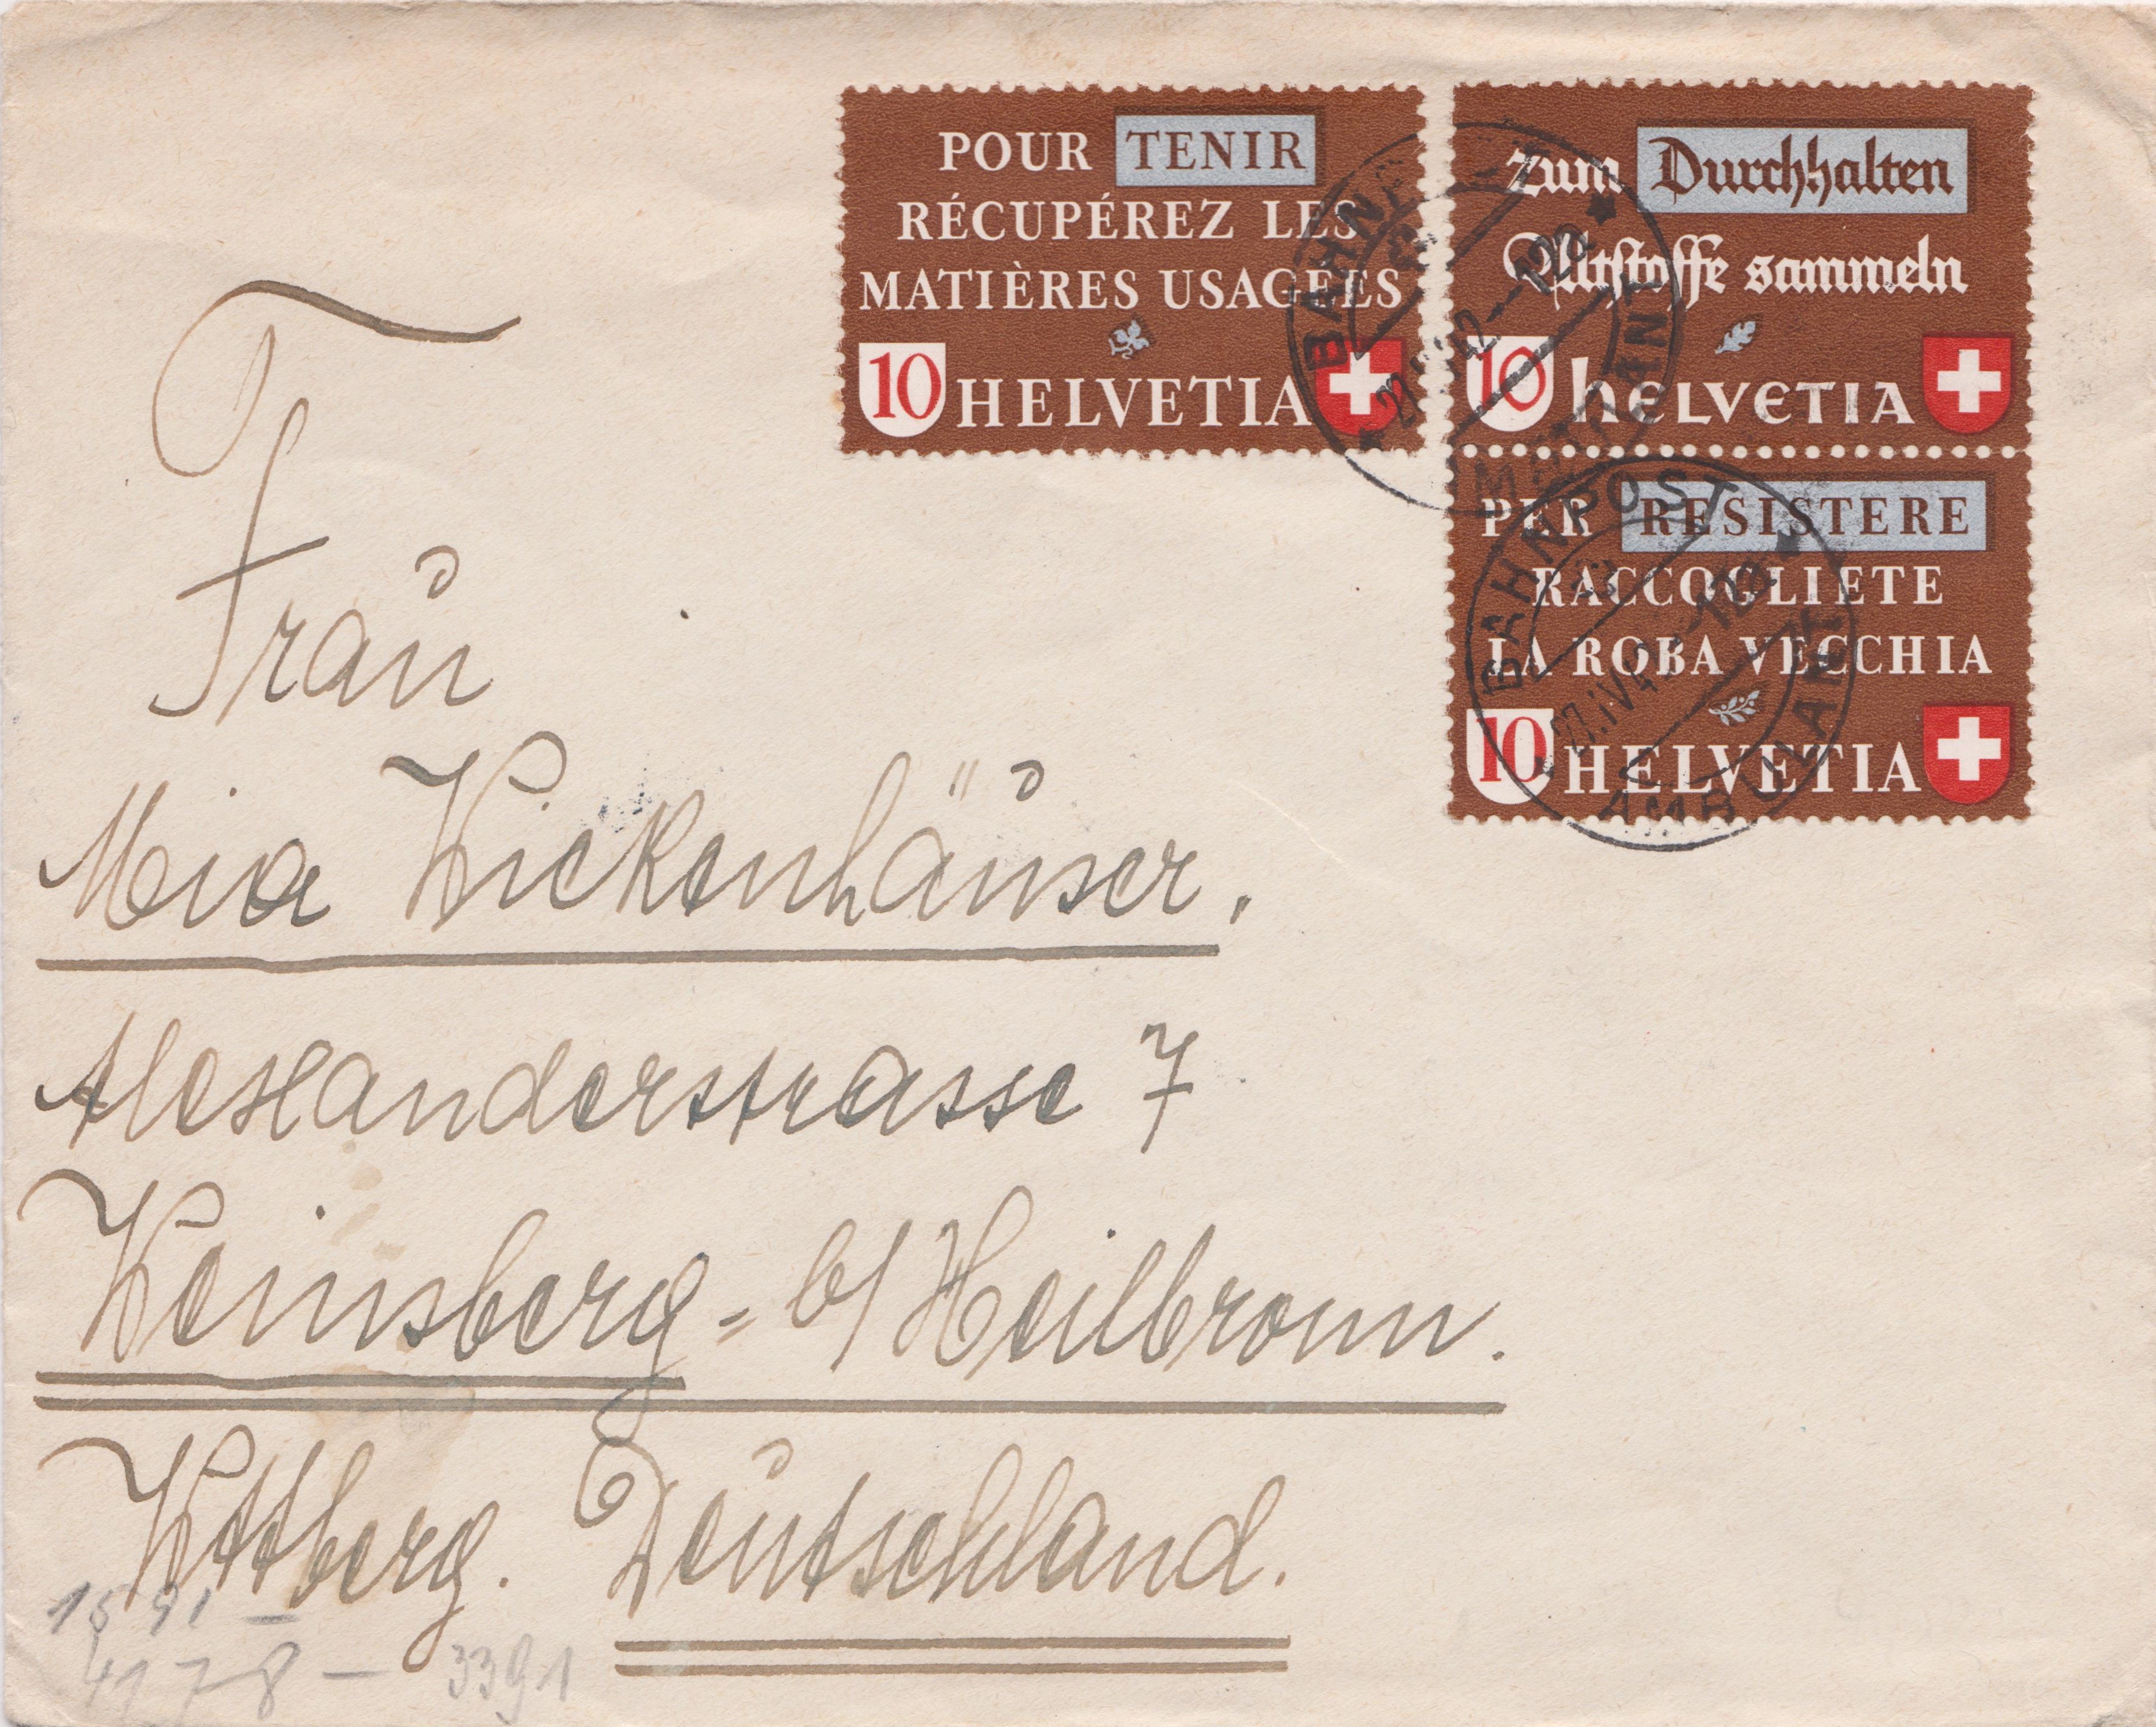 POUR TENIR
RÉCUPÉREZ LES
MATIÈRES USAGÉES
10 HELVETIA
Zum Durchhalten
Altstoffe sammeln
10 HELVETIA
PER RESISTERE
RACCOGLIETE
LA ROBA VECCHIA
10 HELVETIA
BAHNPOST
AMBULANT
BAHNPOST
27.IV.42
AMBULANT
Frau
Mia Wickenhäuser.
Alexanderstrasse 7
Weinsberg - b/ Heilbronn.
Wttberg. Deutschland.
1591 -
4178 - 3391